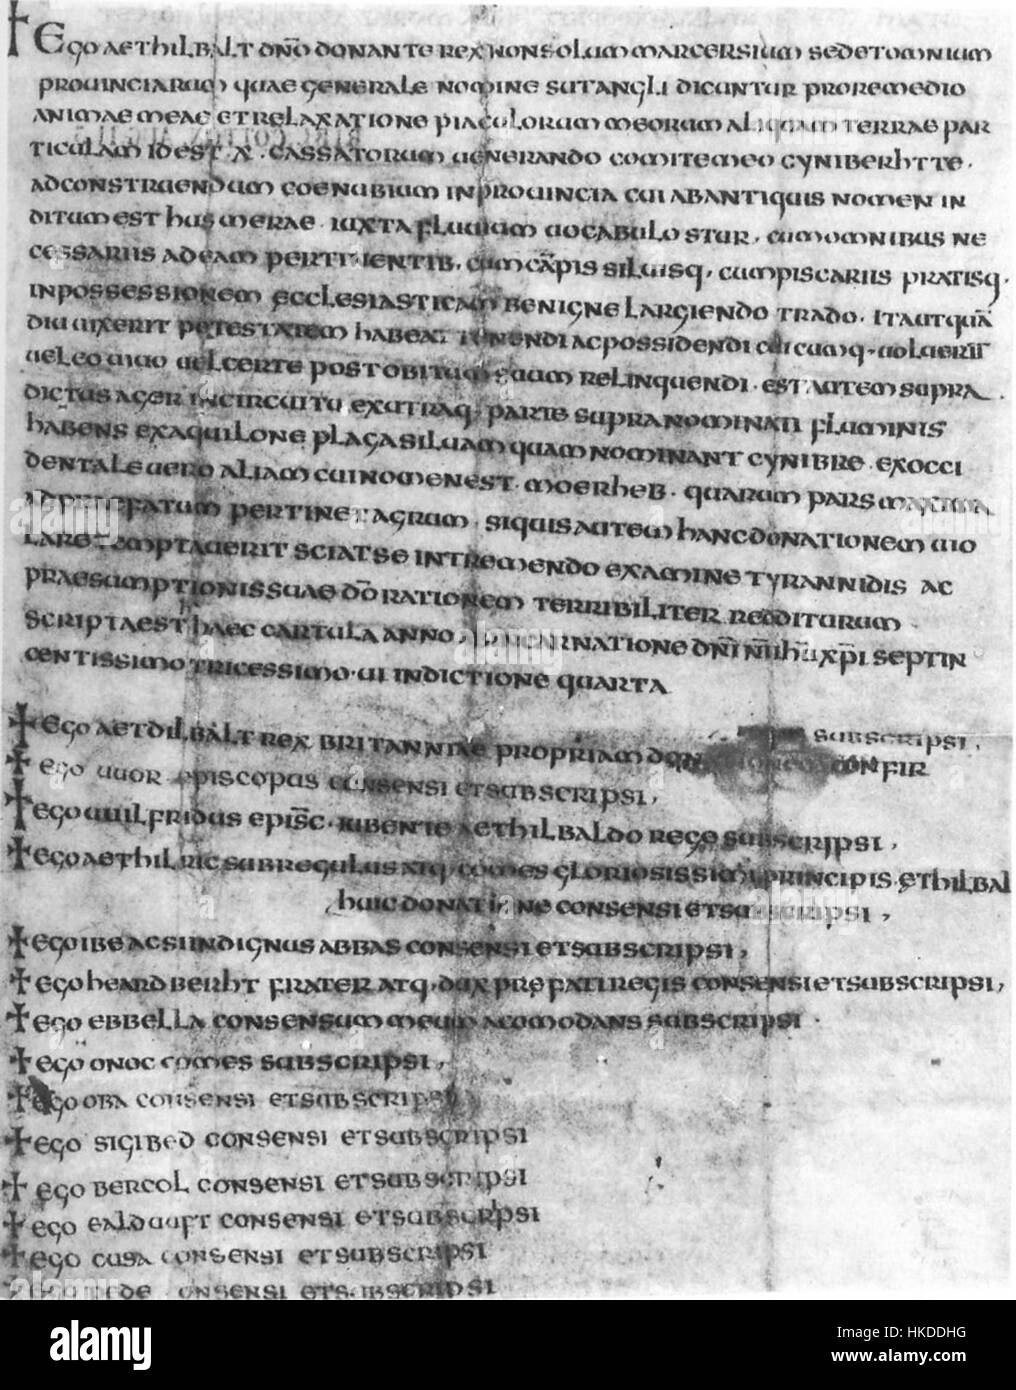 + Ego aethilbalt dn̄o donante rex non solum marcersium sed et omnium
prouinciarum quae generale nomine sutangli dicuntur pro remedio
animae meae et relaxatione piaculorum meorum aliquam terrae par
ticulam id est x. cassatorum uenerando comite meo cyniberhtte.
ad construendum coenubium in prouincia cui ab antiquis nomen in
ditum est husmerae. iuxta fluuium uocabulo stur, cum omnibus ne
cessariis ad eam pertinentib. cum cāpis siluisq, cum piscariis pratisq,
in possessionem ecclesiasticam benigne largiendo trado. ita ut quā
diu uixerit potestatem habeat tenendi ac possidendi cuicumq, uoluerit
uel eo uiuo uel certe post obitum suum relinquendi. est autem supra
dictus ager in circuitu ex utraq, parte supranominati fluminis
habens ex aquilone plaga siluam quam nominant cynibre. ex occi
dentale uero aliam cui nomen est. moerheb. quarum pars maxima
ad praefatum pertinet agrum. siquis autem hanc donationem uio
lare temptauerit sciat se in tremendo examine tyrannidis ac
praesumptionis suae dō rationem terribiliter redditurum.
scripta est haec cartula anno, incarnatione dn̄i nr̄i ihū xp̄i septin
centissimo tricessimo. ui indictione quarta
+ Ego aetdilbalt rex britanniae propriam donationem confir
subscripsi,
+ ego uuor episcopus consensi et subscripsi,
+ ego uuilfridus episc̄. iubente aethilbaldo rege subscripsi,
+ ego aethilric subregulus atq, comes gloriosissimi principis ethilbal
huic donatione consensi et subscripsi,
+ ego ibe acsi indignus abbas consensi et subscripsi,
+ ego heardberht frater atq, dux praefati regis consensi et subscripsi,
+ ego ebbella consensum meum acomodans subscripsi.
+ ego onoc comes subscripsi,
+ ego oba consensi et subscripsi
+ ego sigibed consensi et subscripsi
+ ego bercol consensi et subscripsi
+ ego ealduuft consensi et subscripsi
+ ego cusa consensi et subscripsi
+ ego pede consensi et subscripsi
alamy
Image ID: HKDDHG
www.alamy.com